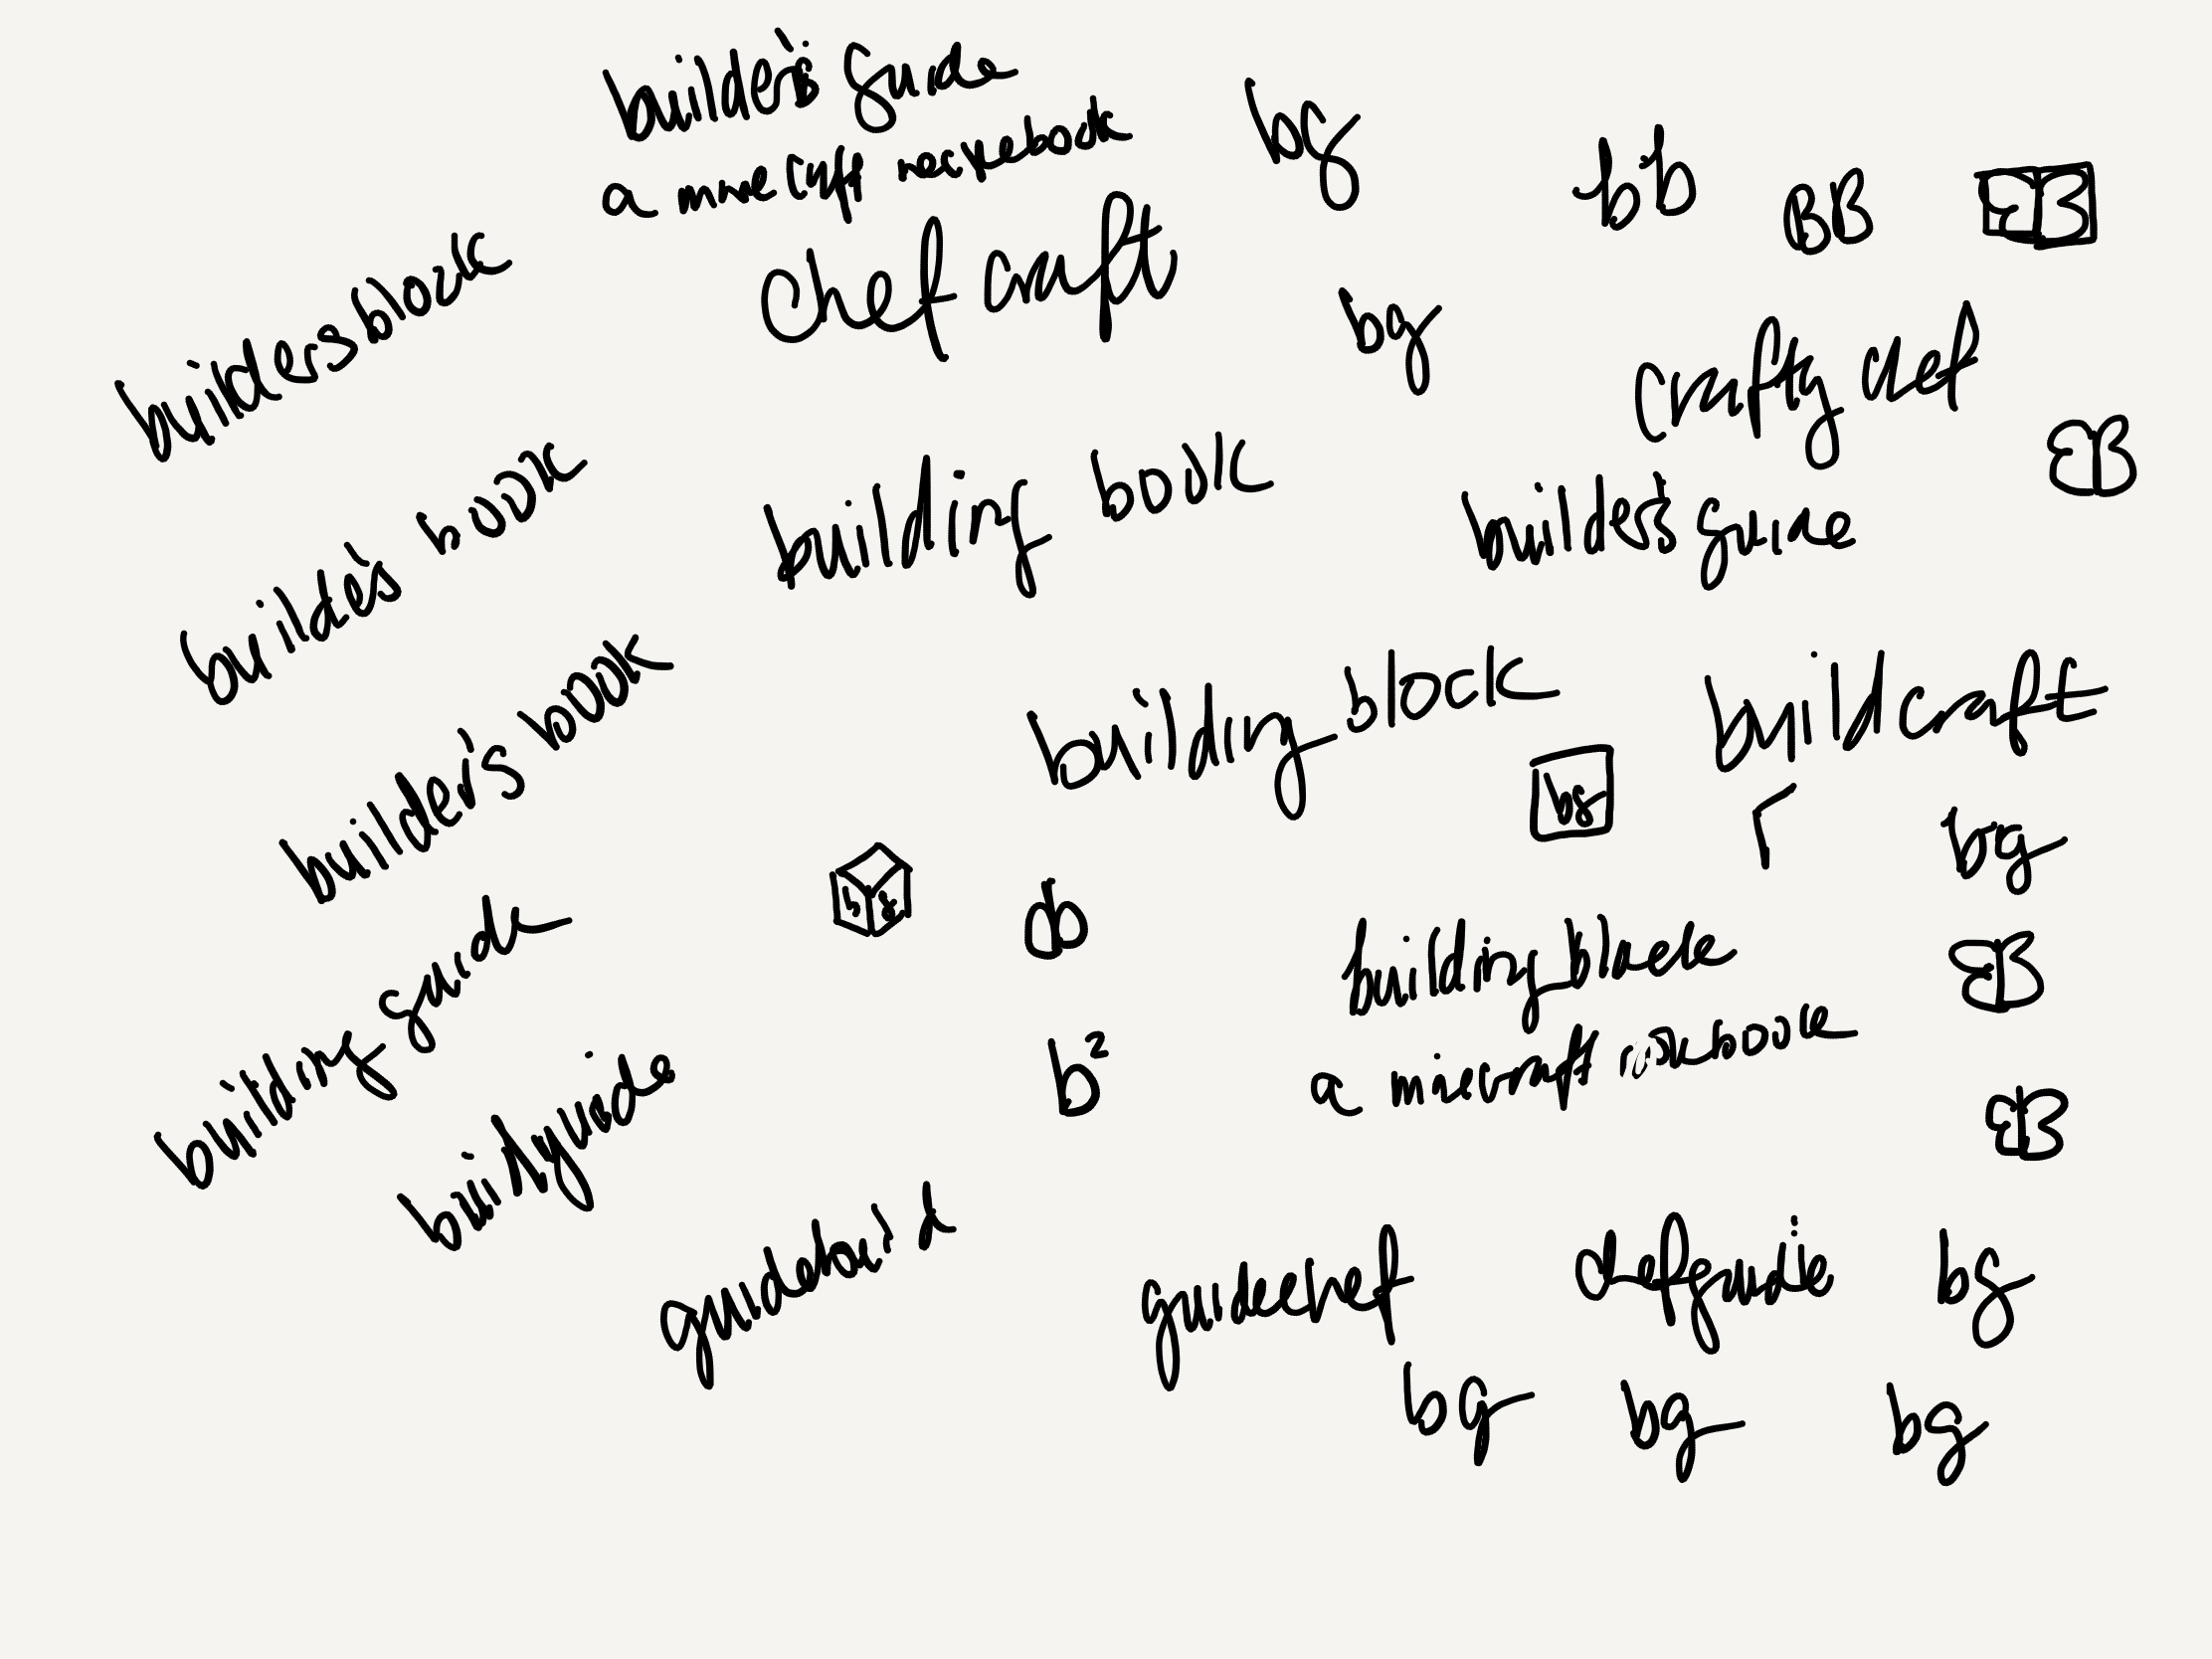 builder's guide
a minecraft recipebook
chefcraft
bg
bb
BB
BB
buildersblock
bg
crafty chef
BB
builder's book
building book
builder's guide
builder's book
building block
buildcraft
bg
bg
bg
building guide
b
building block
BB
a minecraft
b²
BB
buildguide
guidebuild
guidechef
chefguide
bg
bg
bg
bg